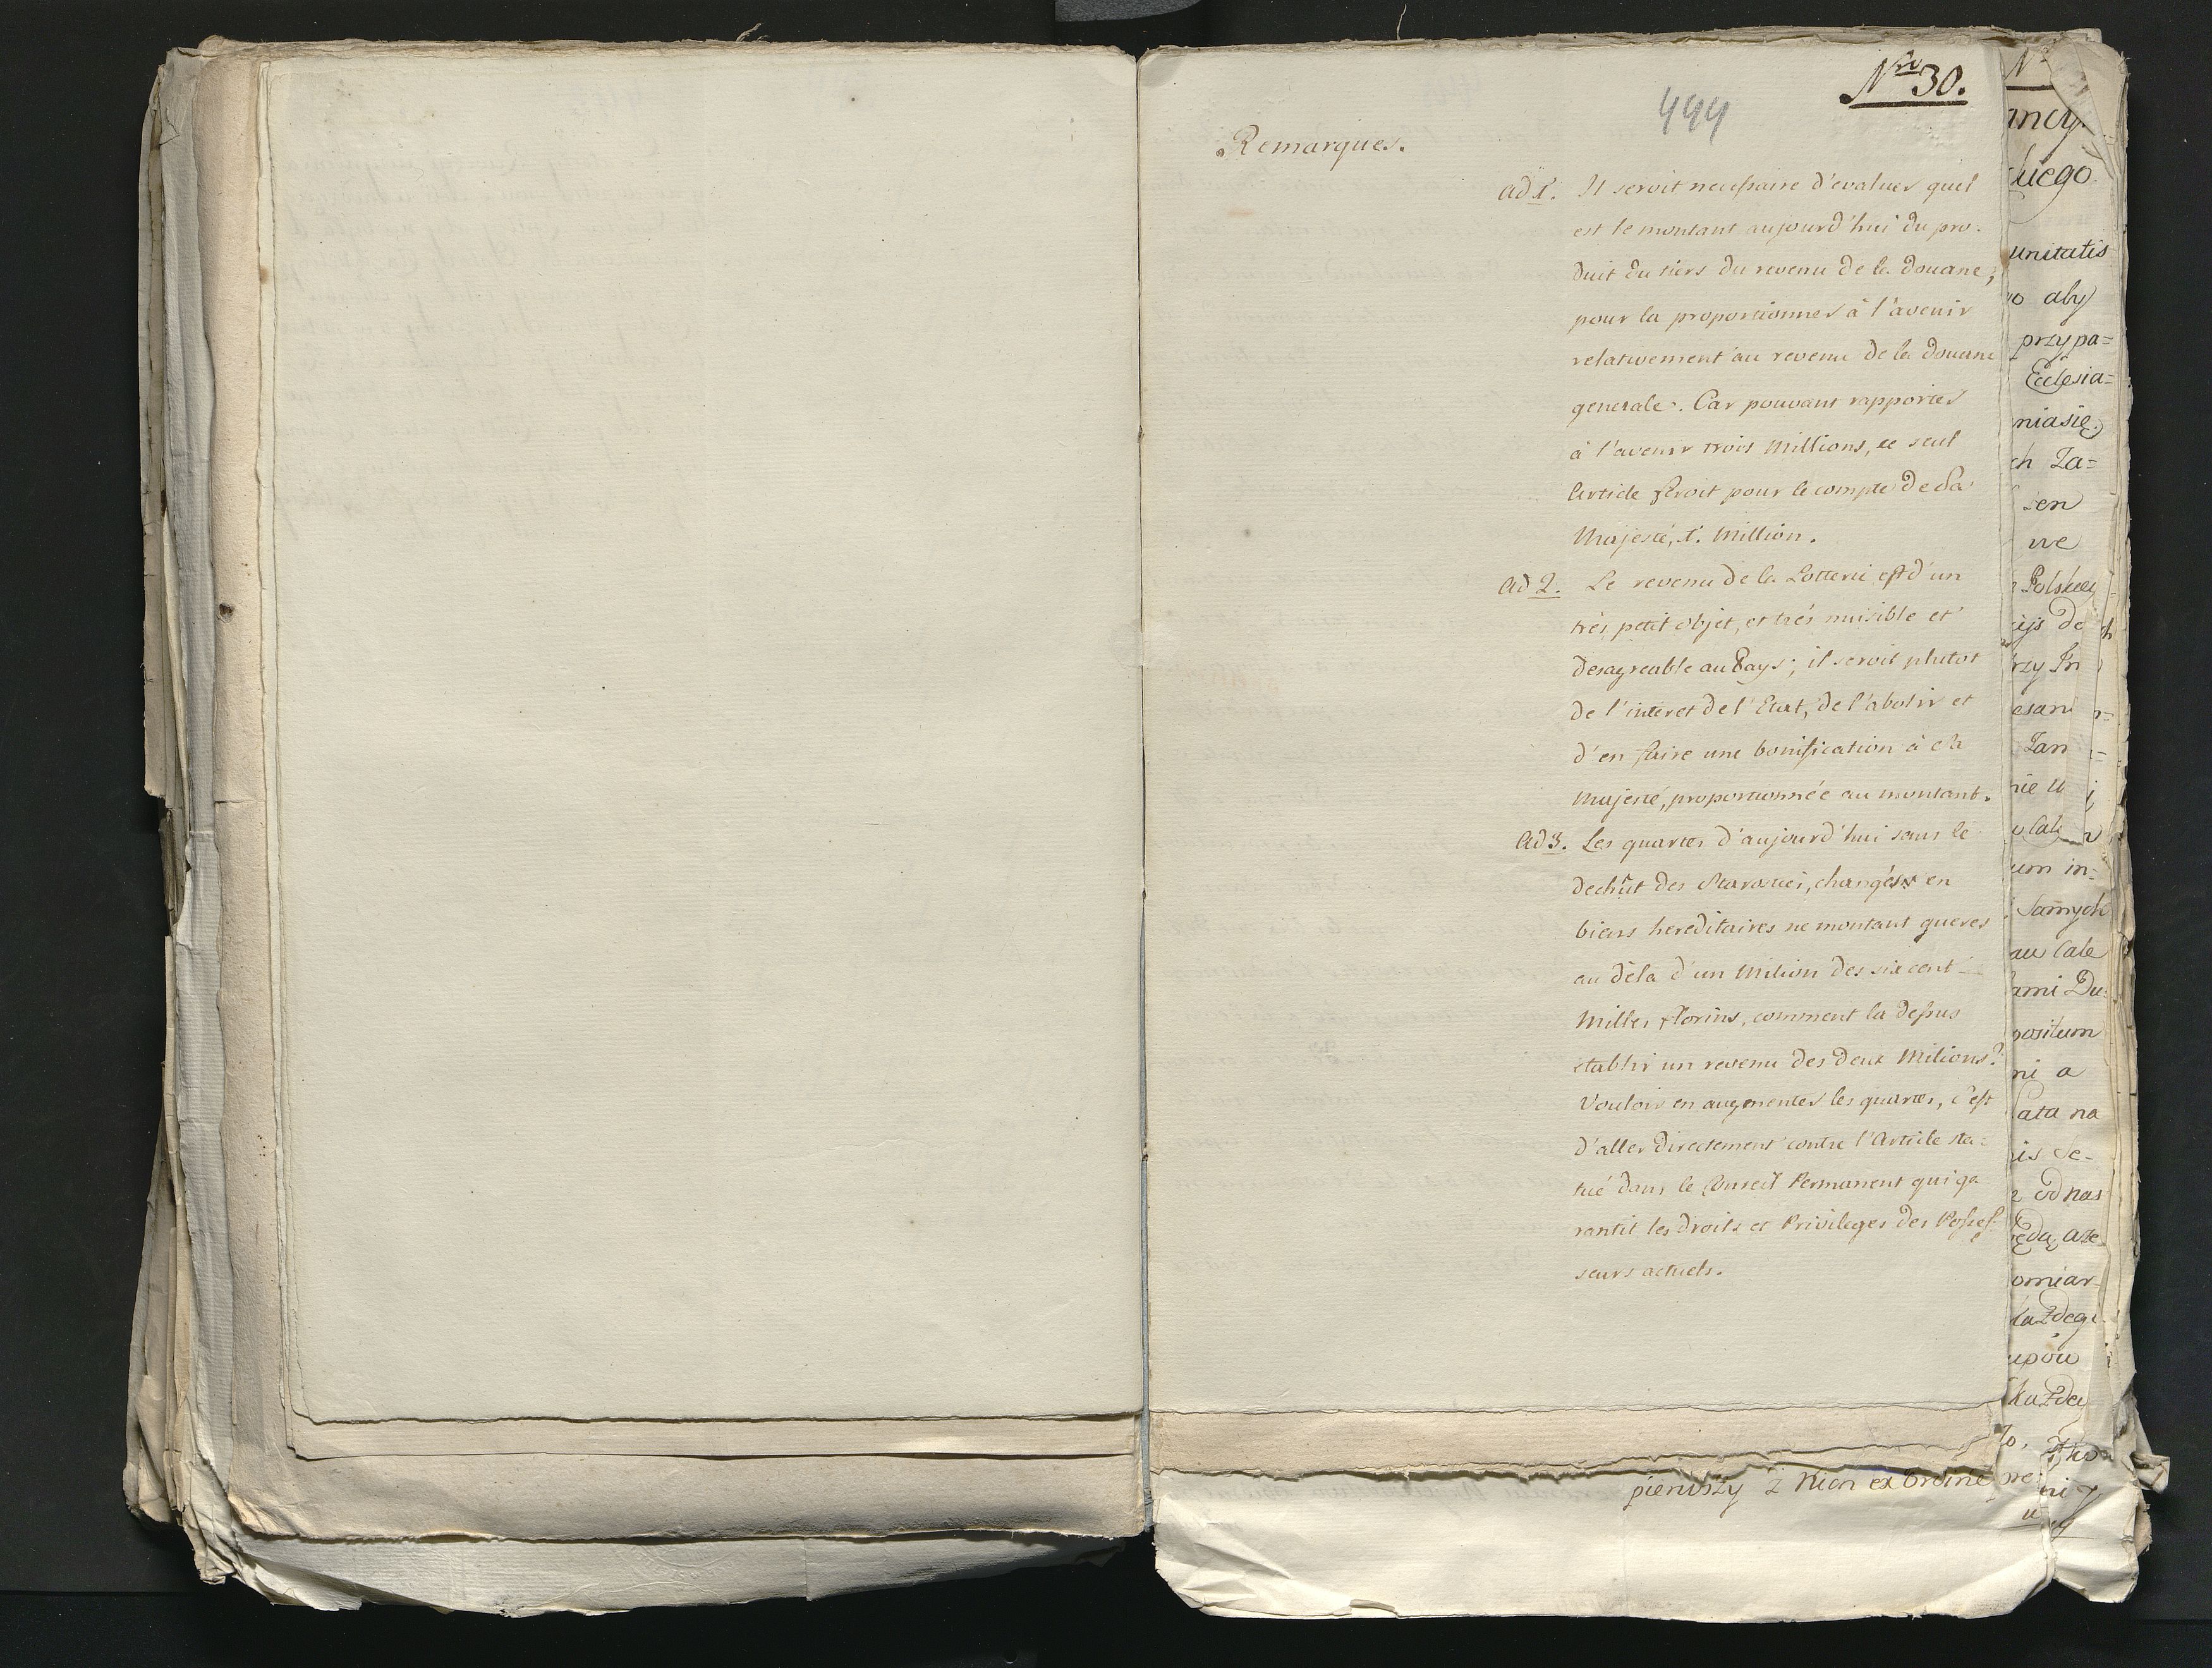 Nro 30.
444
Remarques.
ad 1. Il seroit necessaire d'evaluer quel
est le montant aujourd'hui du pro-
duit du tiers du revenu de la douane,
pour la proportionner à l'avenir
relativement au revenu de la douane
generale. Car pouvant rapporter
à l'avenir trois Millions, ce seul
Article feroit pour le compte de Sa
Majesté, 1. Million.
ad 2. Le revenu de la Lotterie est d'un
très petit objet, et très nuisible et
desagreable au Pays; il seroit plutot
de l'interet de l'Etat, de l'abolir et
d'en faire une bonification à Sa
Majesté, proportionnée au montant.
ad 3. Les quartes d'aujourd'hui sans le
dechût des Starosties, changées en
biens hereditaires ne montant gueres
au dèla d'un Milion des six cent
Milles florins, comment la dessus
etablir un revenu des deux Milions?
Vouloir en augmenter les quartes, c'est
d'aller directement contre l'Article sta-
tué dans le Conseil Permanent qui ga
rantit les droits et Privileges des Posses-
seurs actuels.
pierwszy z Nich ex Ordine
ancy.
unitatis
aby
przypa=
Ecclesia=
niasię
Za=
sen
we
Polskiey
um in=
Samych
Cale
ami Du=
positum
ni a
na
is Se-
od nas